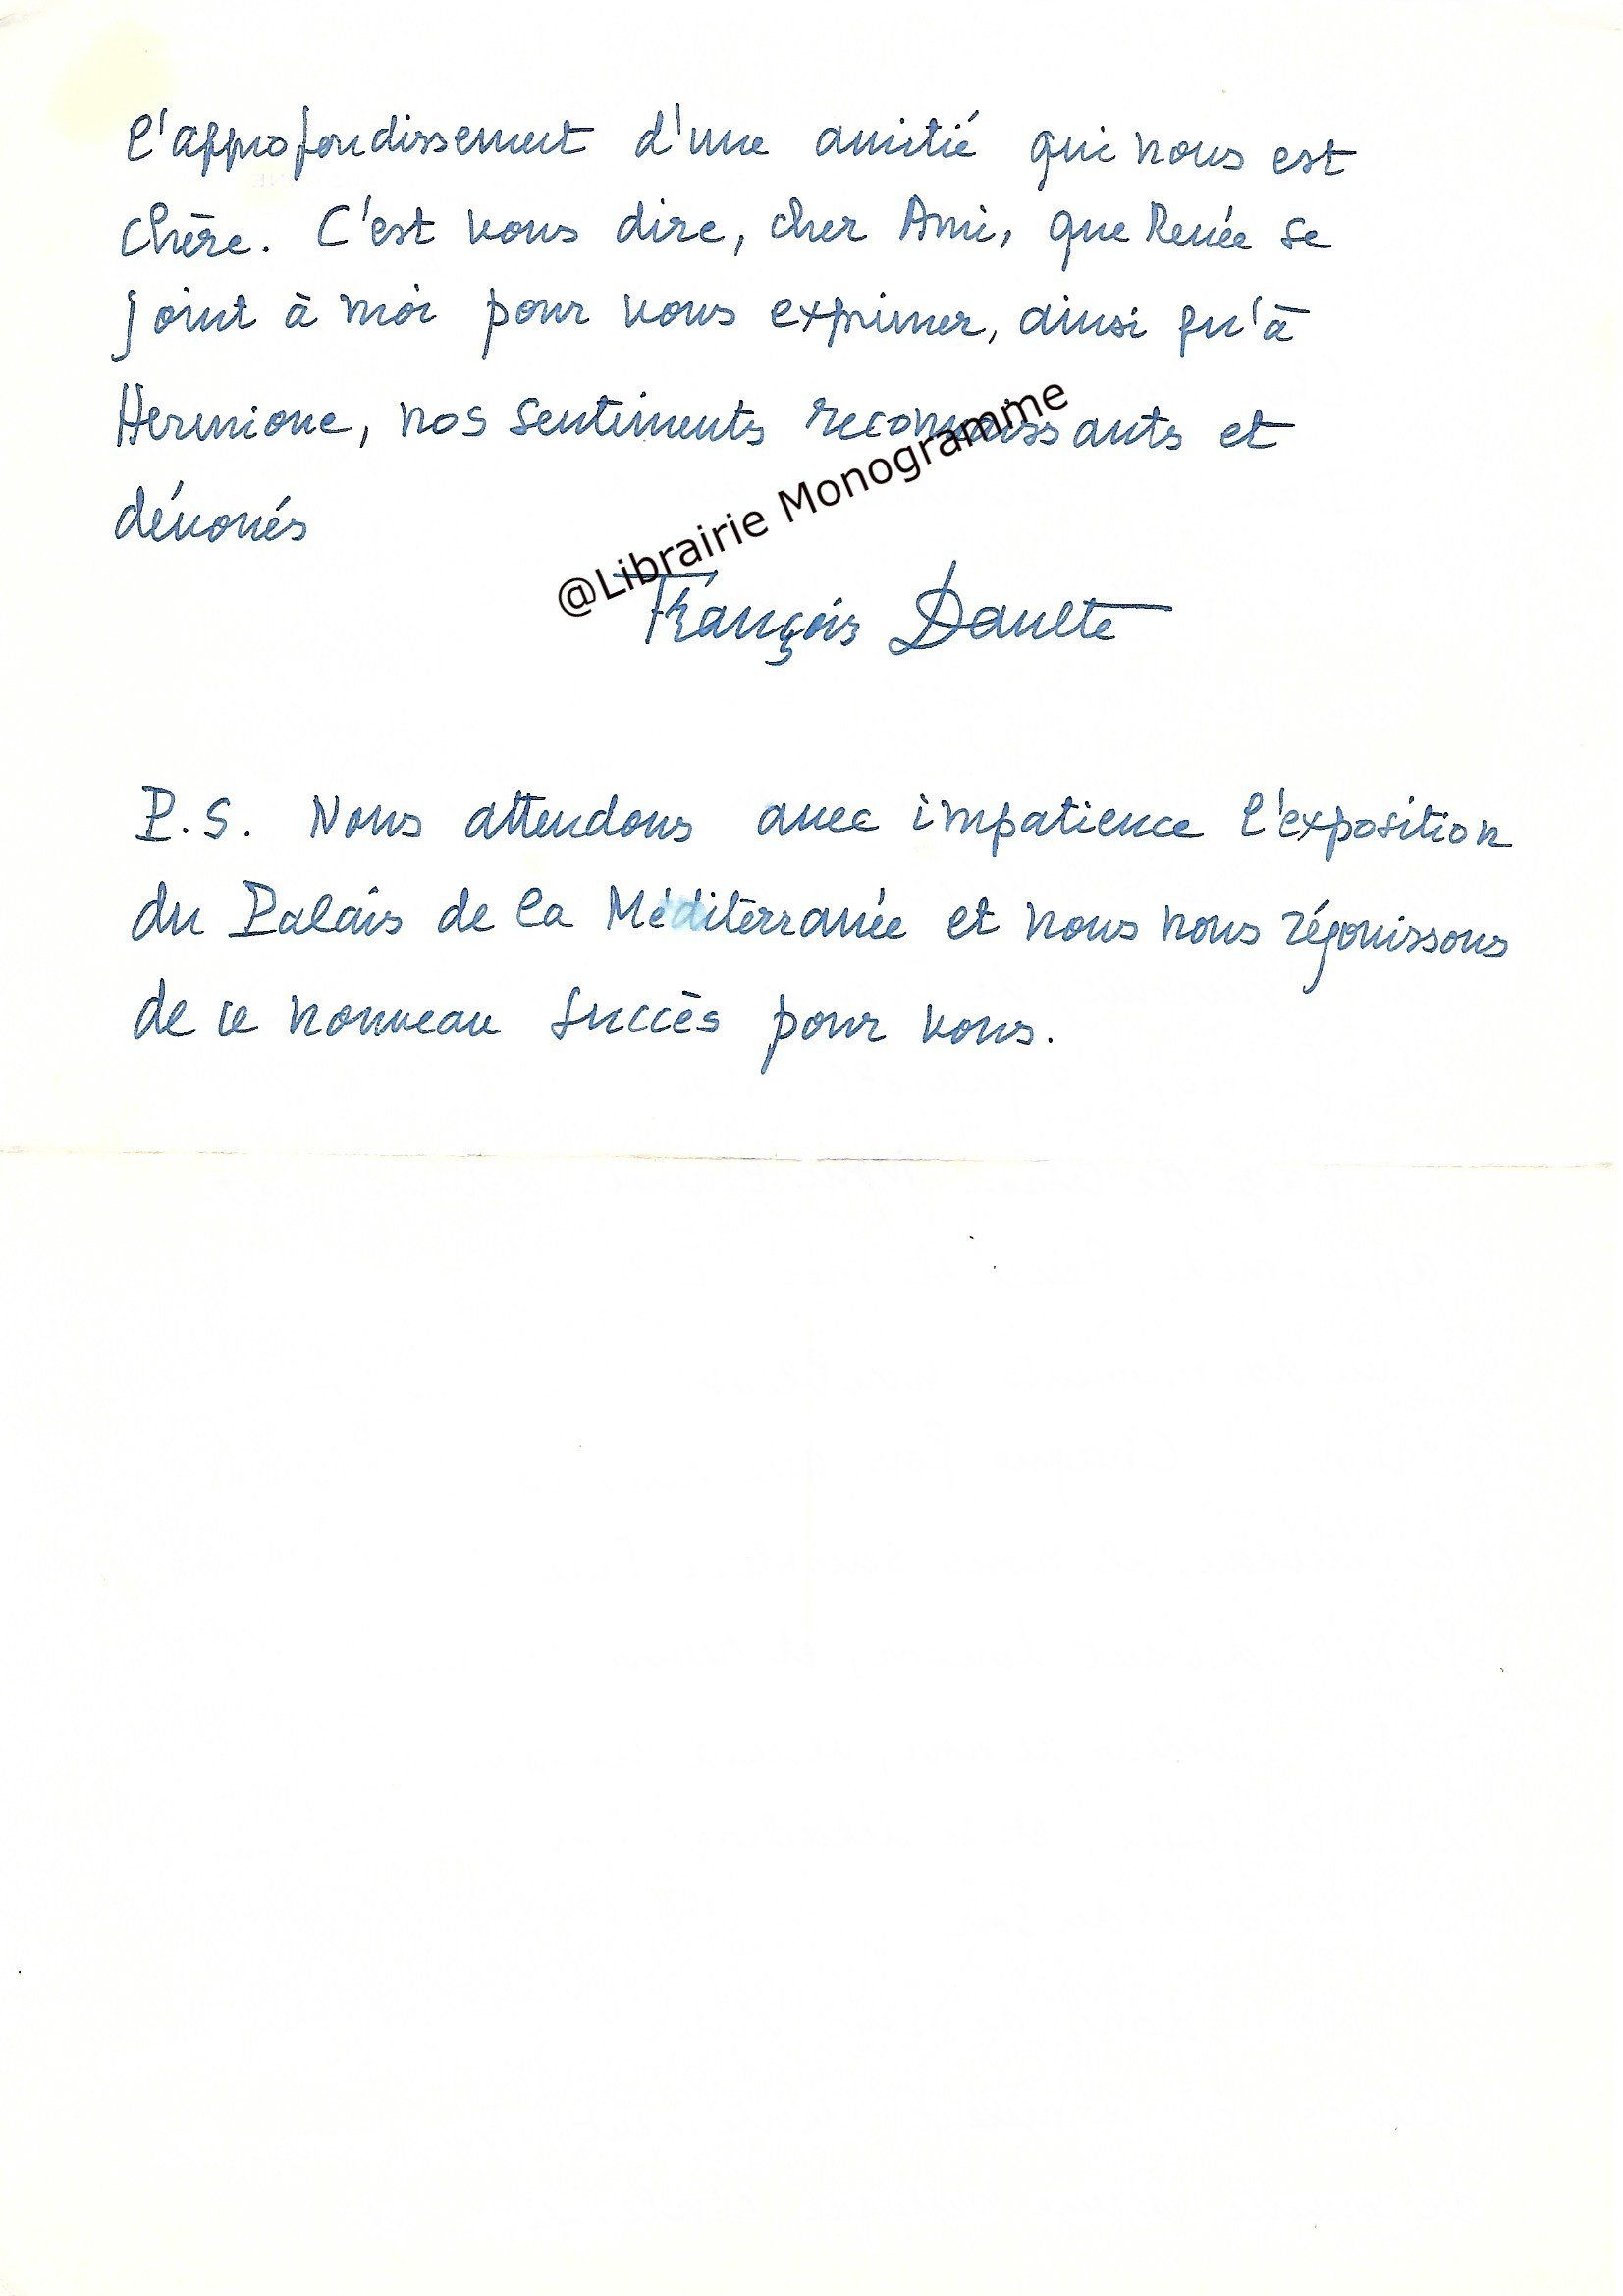 l'approfondissement d'une amitié qui nous est
chère. C'est vous dire, cher Ami, que Renée se
joint à moi pour vous exprimer, ainsi qu'à
Hermione, nos sentiments reconnaissants et
dévoués
@Librairie Monogramme
François Daulte
P.S. Nous attendons avec impatience l'exposition
du Palais de la Méditerranée et nous nous réjouissons
de ce nouveau succès pour vous.